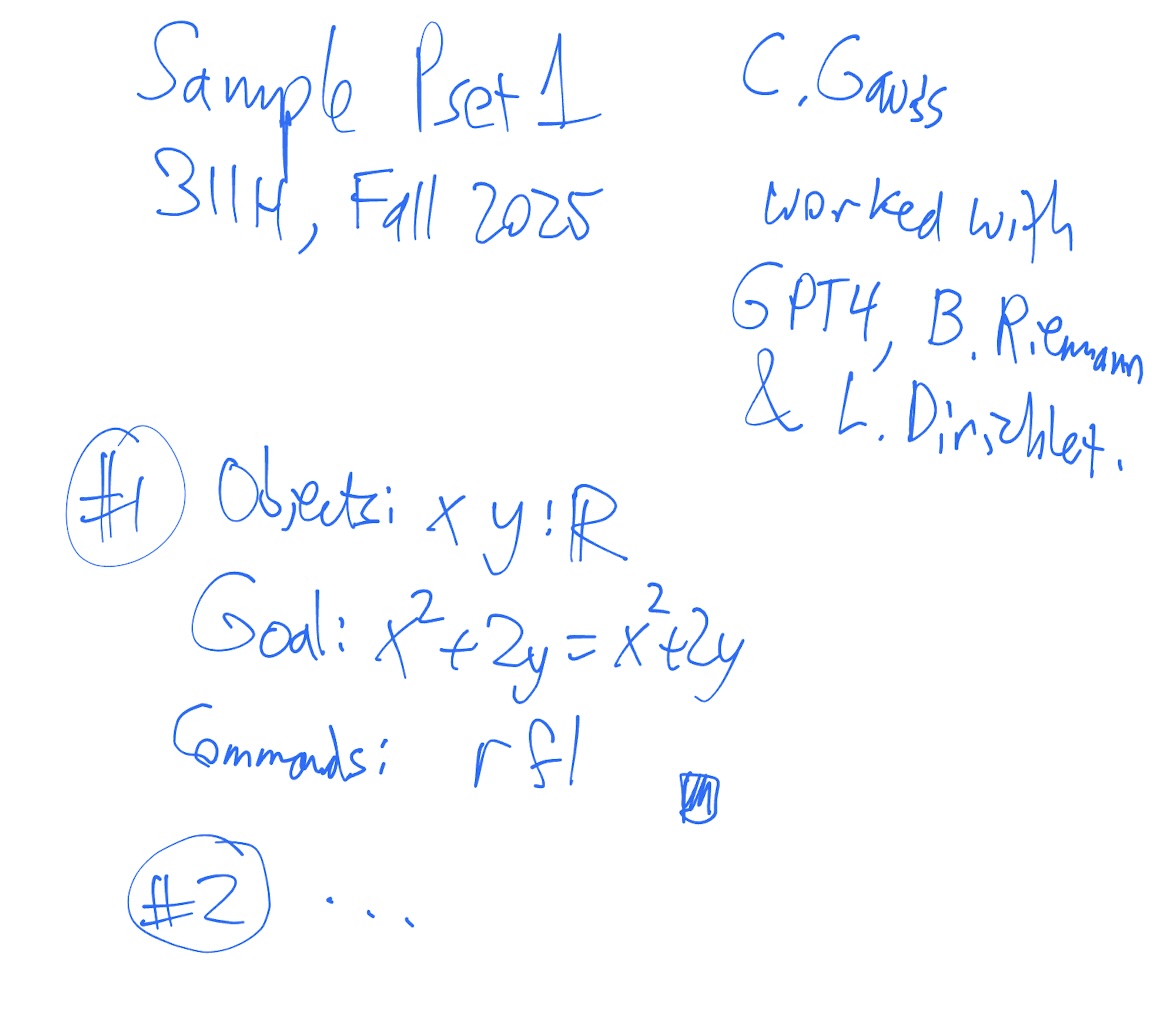 Sample Pset 1
311H, Fall 2025
C. Gauss
worked with
GPT4, B. Riemann
& L. Dirichlet.
#1 Objects: x y : ℝ
Goal: x² + 2y = x² + 2y
Commands: rfl
#2 ...